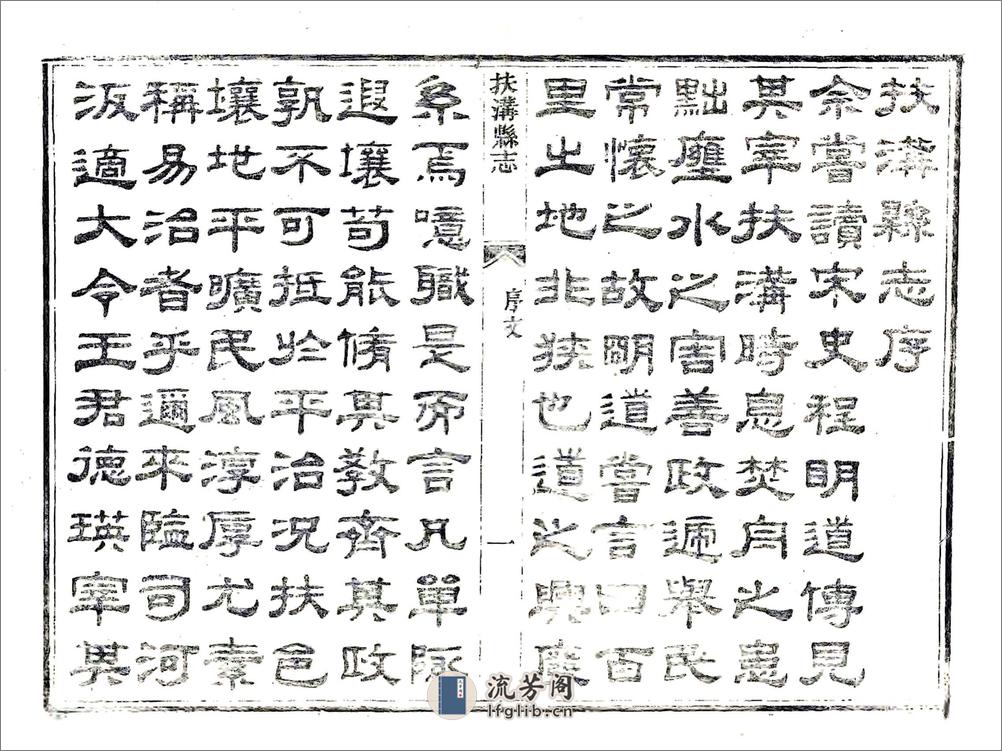 扶溝縣志序
余嘗讀宋史程明道傳見
其宰扶溝時息焚舟之患
黜壅水之害善政遞舉民
常懷之故明道嘗言曰百
里之地非狹也道之興廢
扶溝縣志
序文
一
系焉噫職是而言凡單陬
遐壤苟能脩其敎齊其政
孰不可抵於平治況扶邑
壤地平曠民風淳厚尤素
稱易治者乎邇來臨司河
汳適大令王君德瑛宰其
流芳阁
lfglib.cn